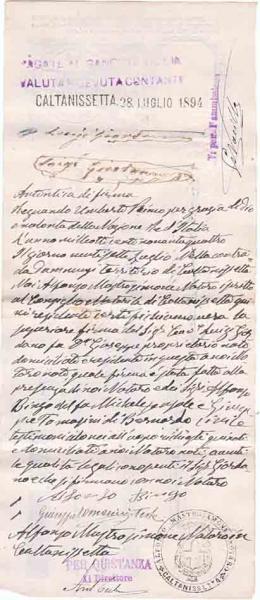 PAGATE AL BANCO DI SICILIA
VALUTA RICEVUTA CONTANTI
CALTANISSETTA 28 LUGLIO 1894
Luigi Giordano
Luigi Giordano
Autentica di firma
Regnando Umberto Primo per grazia di Dio
e volontà della Nazione Re d'Italia
L'anno milleottocentonovantaquattro
il giorno ventisette Luglio Nella contra
da territorio di Caltanissetta
Noi Alfonso Mastrosimone Notaro
Consiglio Notarile di Caltanissetta qui
vi residente certifichiamo vera la
superiore firma del Sig. Luigi Gior
dano fu Giuseppe proprietario nato
domiciliato e residente in questa a noi No
taro noto quale firma è stata fatta alla
presenza di noi Notaro e dei Sigri Alfonso
Bingo del fu Michele e Giusep
pe Tomasini di Bernardo civile
testimoni idonei all'uopo richiesti qui nati
e domiciliati a noi Notaro noti, aventi
le qualità legali conoscenti il Sig. Giorda
no e che si firmano con noi Notaro
Alfonso Bingo
Giuseppe Tomasini
Alfonso Mastrosimone Notaro in
Caltanissetta
PER QUISTANZA
Il Direttore
CALTANISSETTA